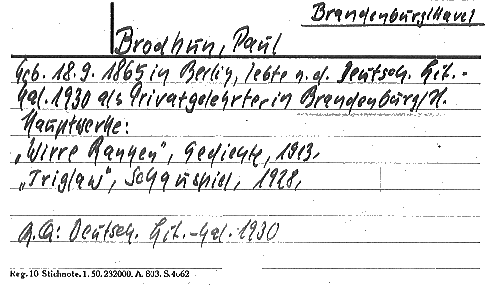 Brandenburg/Havel
Brodhun, Paul
Geb. 18.9. 1865 in Berlin, lebte n.d. Deutsch. Lit.-
Kal. 1930 als Privatgelehrter in Brandenburg/H.
Hauptwerke:
„Wirre Ranken", Gedichte, 1913,
„Triglaw", Schauspiel, 1928,
A.Q: Deutsch. Lit.-Kal. 1930
Reg. 10 Stichnote. 1. 50. 232000. A. 803. S. 4662